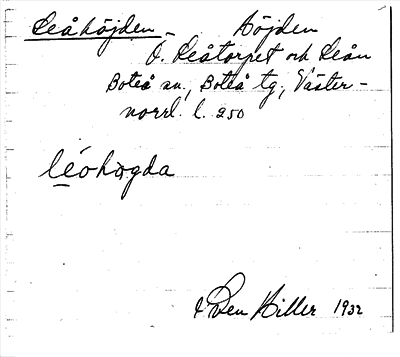 Leåhöjden – Höjden
O. Leåtorpet och Leån
Boteå sn, Boteå tg, Väster-
norrl. l. 250
léohøgda
Sven Hiller 1932